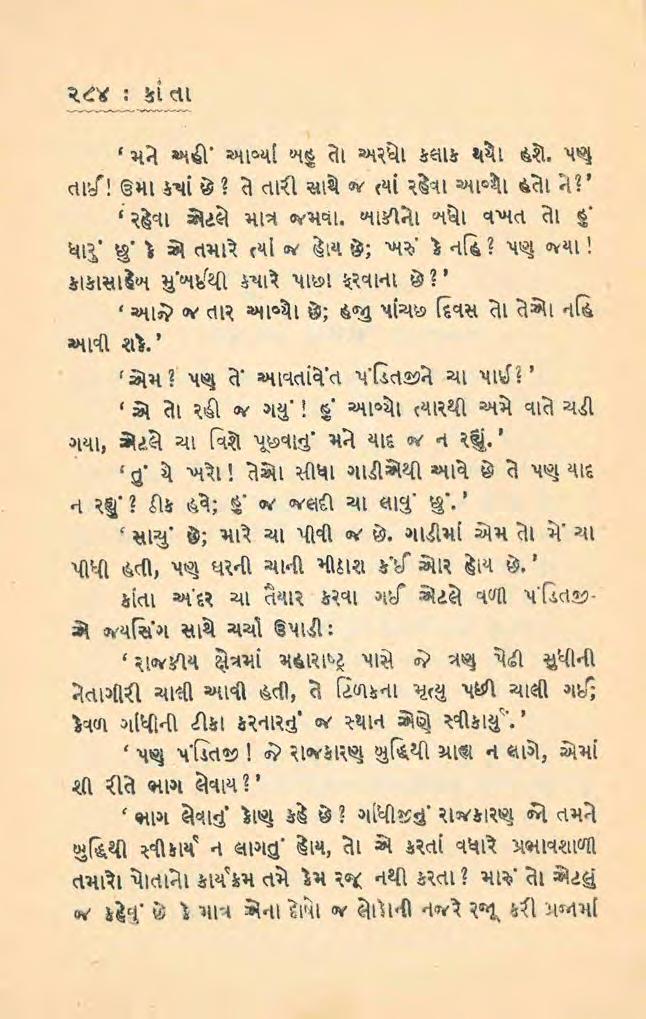 ૨૮૪ : કાંતા
‘મને અહીં આવ્યાં બહુ તો અરધો કલાક થયો હશે. પણ
તાઈ! ઉમા કયાં છે? તે તારી સાથે જ ત્યાં રહેવા આવ્યો હતો ને?’
‘રહેવા એટલે માત્ર જમવા. બાકીનો બધો વખત તો હું
ધારું છું કે એ તમારે ત્યાં જ હોય છે; ખરું કે નહિ? પણ જયા!
કાકાસાહેબ મુંબઈથી કયારે પાછા ફરવાના છે?’
‘આજે જ તાર આવ્યો છે; હજી પાંચછ દિવસ તો તેઓ નહિ
આવી શકે.’
‘એમ? પણ તેં આવતાંવેંત પંડિતજીને ચા પાઈ?’
‘એ તો રહી જ ગયું! હું આવ્યો ત્યારથી અમે વાતે ચડી
ગયા, એટલે ચા વિશે પૂછવાનું મને યાદ જ ન રહ્યું.’
‘તું યે ખરો! તેઓ સીધા ગાડીએથી આવે છે તે પણ યાદ
ન રહ્યું? ઠીક હવે; હું જ જલદી ચા લાવું છું.’
‘સાચું છે; મારે ચા પીવી જ છે. ગાડીમાં એમ તો મેં ચા
પીધી હતી, પણ ઘરની ચાની મીઠાશ કંઈ ઓર હોય છે.’
કાંતા અંદર ચા તૈયાર કરવા ગઈ એટલે વળી પંડિતજી-
એ જયસિંગ સાથે ચર્ચા ઉપાડી:
‘રાજકીય ક્ષેત્રમાં મહારાષ્ટ્ર પાસે જે ત્રણ પેઢી સુધીની
નેતાગીરી ચાલી આવી હતી, તે ટિળકના મૃત્યુ પછી ચાલી ગઈ;
કેવળ ગાંધીની ટીકા કરનારનું જ સ્થાન એણે સ્વીકાર્યું.’
‘પણ પંડિતજી! જે રાજકારણ બુદ્ધિથી ગ્રાહ્ય ન લાગે, એમાં
શી રીતે ભાગ લેવાય?’
‘ભાગ લેવાનું કોણ કહે છે? ગાંધીજીનું રાજકારણ જો તમને
બુદ્ધિથી સ્વીકાર્ય ન લાગતું હોય, તો એ કરતાં વધારે પ્રભાવશાળી
તમારો પોતાનો કાર્યક્રમ તમે કેમ રજૂ નથી કરતા? મારું તો એટલું
જ કહેવું છે કે માત્ર એના દોષો જ લોકોની નજરે રજૂ કરી પ્રજામાં